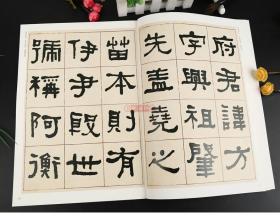 府君諱方
字興祖肇
先蓋堯之
苗本則有
伊尹殷世
號稱阿衡